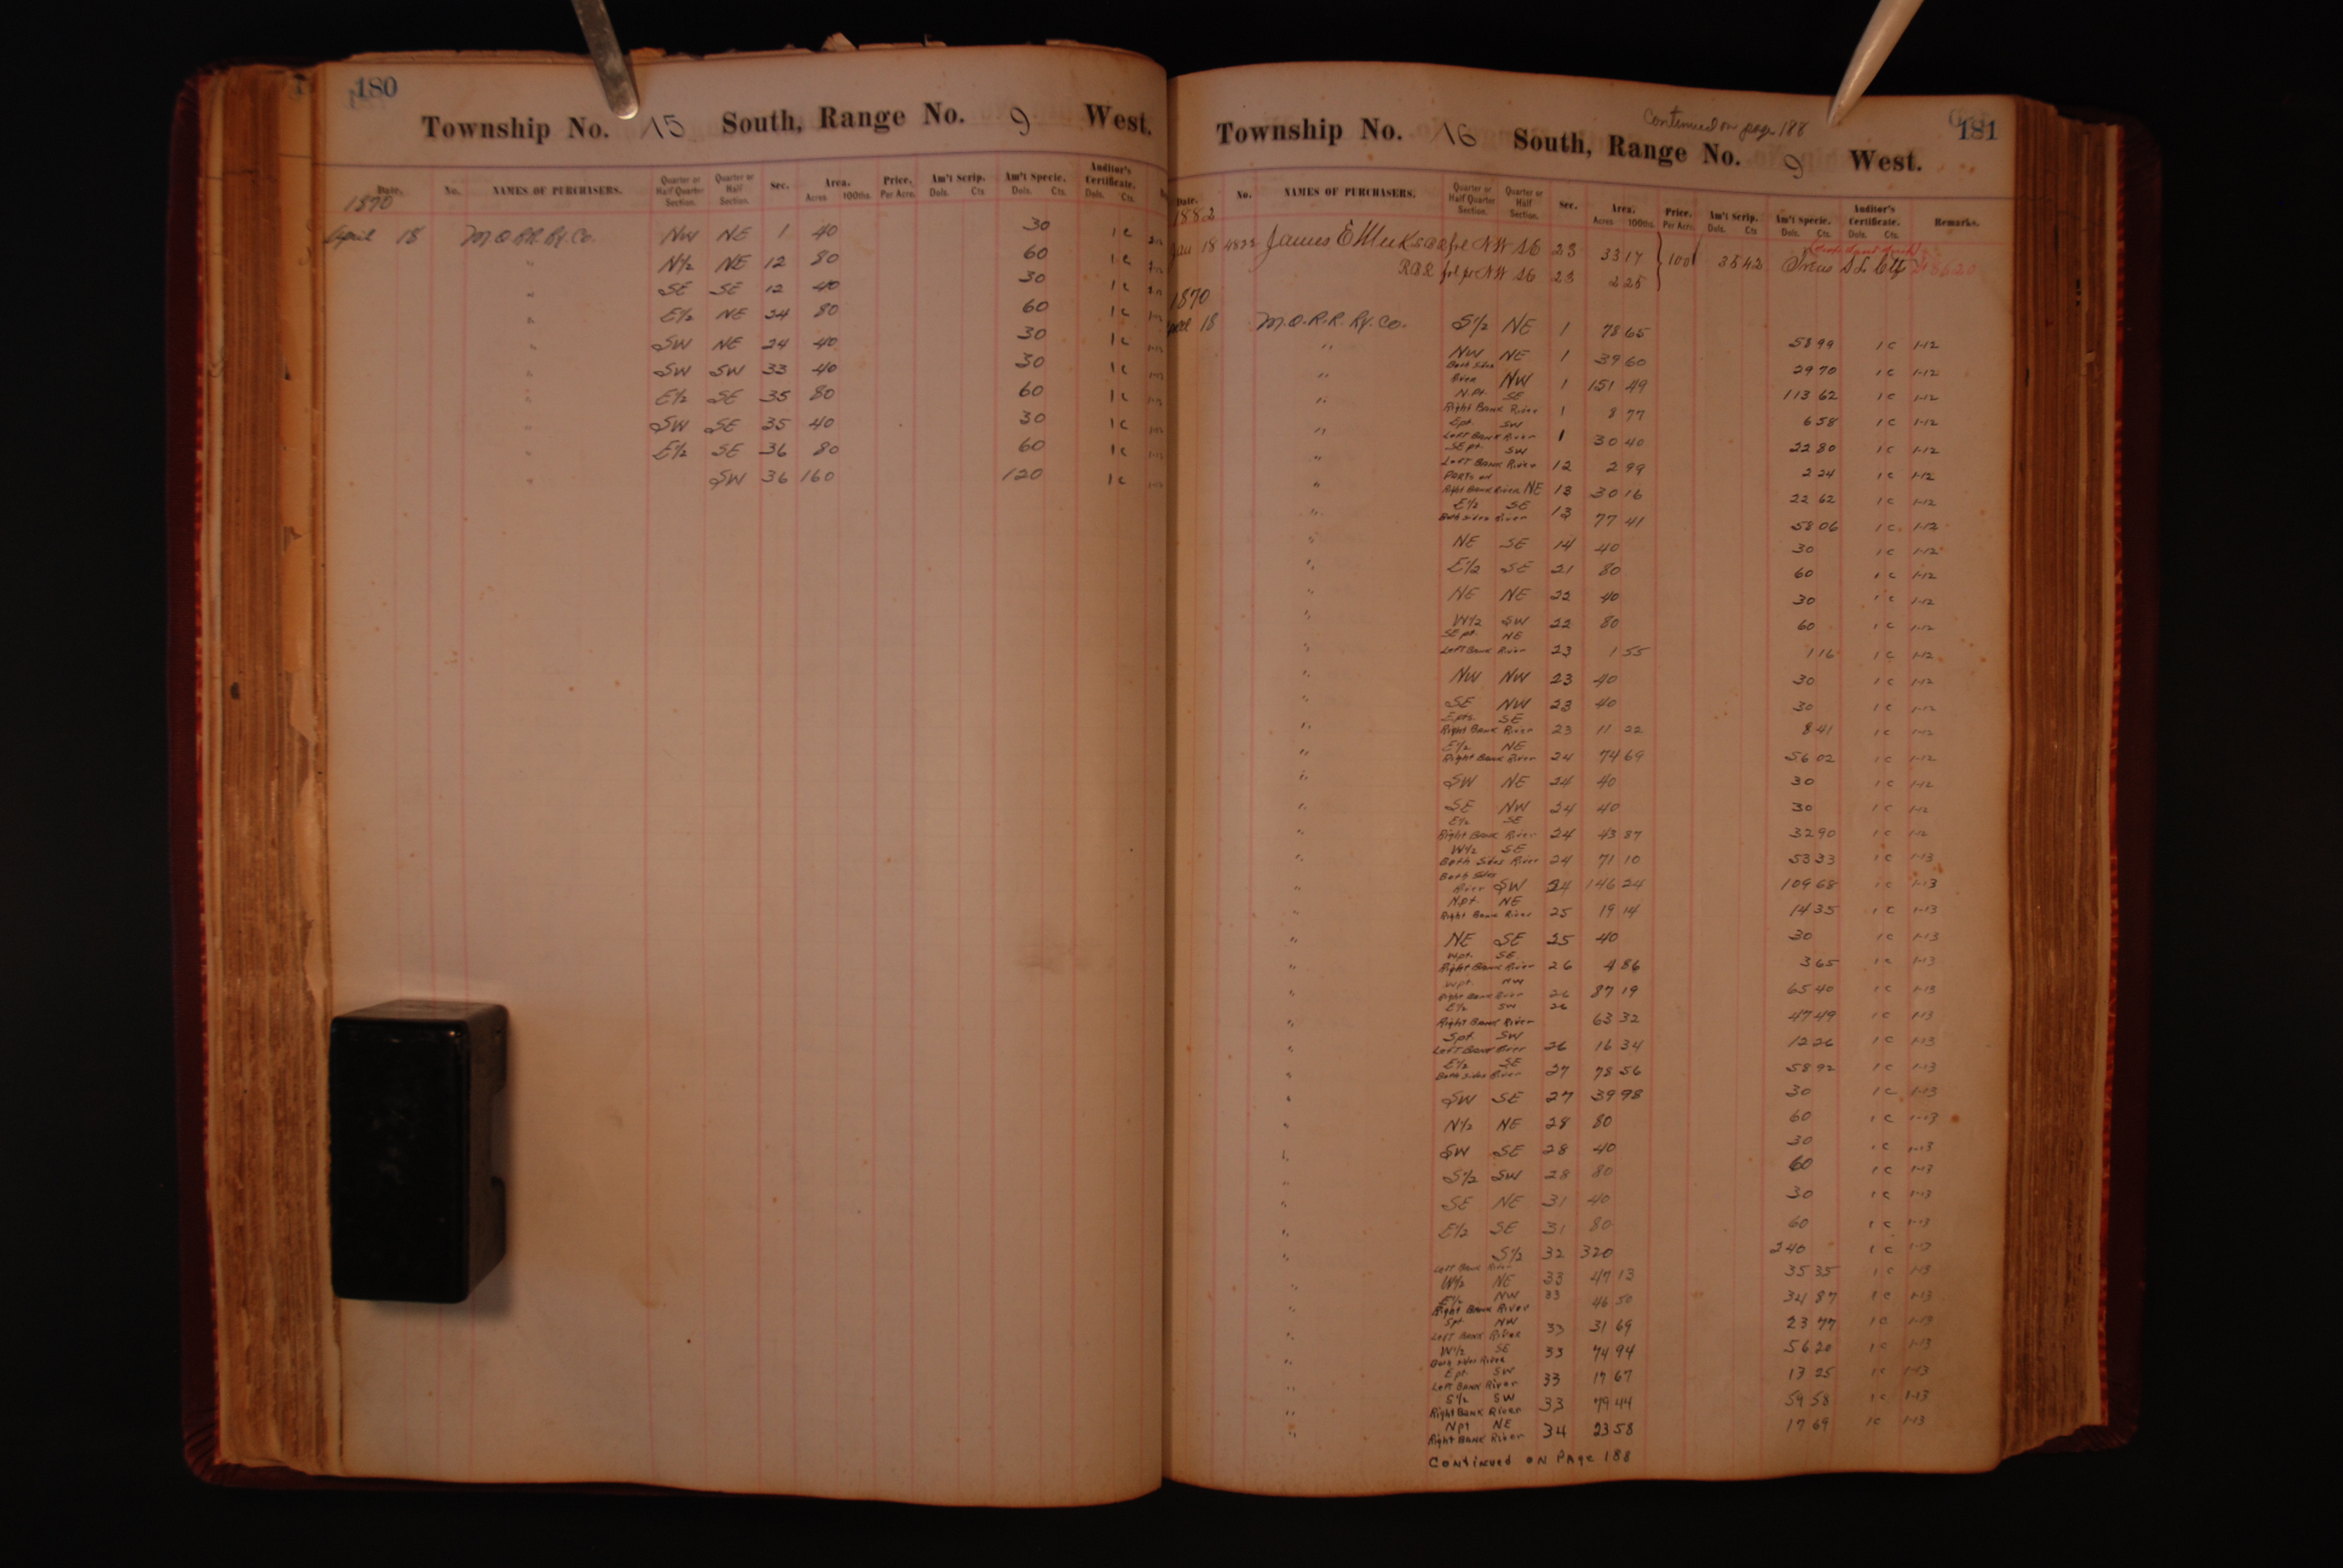 180
Township No. 15 South, Range No. 9 West.
Date. No. NAMES OF PURCHASERS. Quarter or Half Quarter Section. Quarter or Half Section. Sec. Area. Acres 100ths. Price. Per Acre. Am't Scrip. Dols. Cts Am't Specie. Dols. Cts. Auditor's Certificate. Dols. Cts.
1870
April 18 M.O.R.R. Ry. Co. NW NE 1 40 30 1c
" N½ NE 12 80 60 1c
" SE SE 12 40 30 1c
" E½ NE 24 80 60 1c
" SW NE 24 40 30 1c
" SW SW 33 40 30 1c
" E½ SE 35 80 60 1c
" SW SE 35 40 30 1c
" E½ SE 36 80 60 1c
" SW 36 160 120 1c
181
Continued on page 188
Township No. 16 South, Range No. 9 West.
Date. No. NAMES OF PURCHASERS. Quarter or Half Quarter Section. Quarter or Half Section. Sec. Area. Acres 100ths. Price. Per Acre. Am't Scrip. Dols. Cts Am't Specie. Dols. Cts. Auditor's Certificate. Dols. Cts. Remarks.
1882
Jan 18 4822 James E Meeks NW SE 23 33 17 100 35 42
RBR NW SE 23 2 25
1870
18 M.O.R.R. Ry. Co. S½ NE 1 78 65 58 99 1c 1-12
" NW NE 1 39 60 29 70 1c 1-12
" Both Sides River NW 1 151 49 113 62 1c 1-12
" N.Pt. SE Right Bank River 1 8 77 6 58 1c 1-12
" Ept. SW Left Bank River 1 30 40 22 80 1c 1-12
" SE pt. SW Left Bank River 12 2 99 2 24 1c 1-12
" Parts on Right Bank River NE 13 30 16 22 62 1c 1-12
" E½ SE Both sides River 13 77 41 58 06 1c 1-12
" NE SE 14 40 30 1c 1-12
" E½ SE 21 80 60 1c 1-12
" NE NE 22 40 30 1c 1-12
" W½ SW 22 80 60 1c 1-12
" SE pt. NE Left Bank River 23 1 55 1 16 1c 1-12
" NW NW 23 40 30 1c 1-12
" SE NW 23 40 30 1c 1-12
" E pts. SE Right Bank River 23 11 22 8 41 1c 1-12
" E½ NE Right Bank River 24 74 69 56 02 1c 1-12
" SW NE 24 40 30 1c 1-12
" SE NW 24 40 30 1c 1-12
" E½ SE Right Bank River 24 43 87 32 90 1c 1-12
" W½ SE Both Sides River 24 71 10 53 33 1c 1-13
" Both Sides River SW 24 146 24 109 68 1c 1-13
" N.pt NE Right Bank River 25 19 14 14 35 1c 1-13
" NE SE 25 40 30 1c 1-13
" Wpt. SE Right Bank River 26 4 86 3 65 1c 1-13
" Wpt. NW Right Bank River 26 87 19 65 40 1c 1-13
" E½ SW 26 Right Bank River 63 32 47 49 1c 1-13
" Spt. SW Left Bank River 26 16 34 12 26 1c 1-13
" E½ SE Both sides River 27 78 56 58 92 1c 1-13
" SW SE 27 39 98 30 1c 1-13
" N½ NE 28 80 60 1c 1-13
" SW SE 28 40 30 1c 1-13
" S½ SW 28 80 60 1c 1-13
" SE NE 31 40 30 1c 1-13
" E½ SE 31 80 60 1c 1-13
" S½ 32 320 240 1c 1-13
" Left Bank River W½ NE 33 47 13 35 35 1c 1-13
" E½ NW 33 Right Bank River 46 50 34 87 1c 1-13
" Spt NW Left Bank River 33 31 69 23 77 1c 1-13
" W½ SE Both sides River 33 74 94 56 20 1c 1-13
" Ept. SW Left Bank River 33 17 67 13 25 1c 1-13
" S½ SW Right Bank River 33 79 44 59 58 1c 1-13
" Npt NE Right Bank River 34 23 58 17 69 1c 1-13
Continued on Page 188